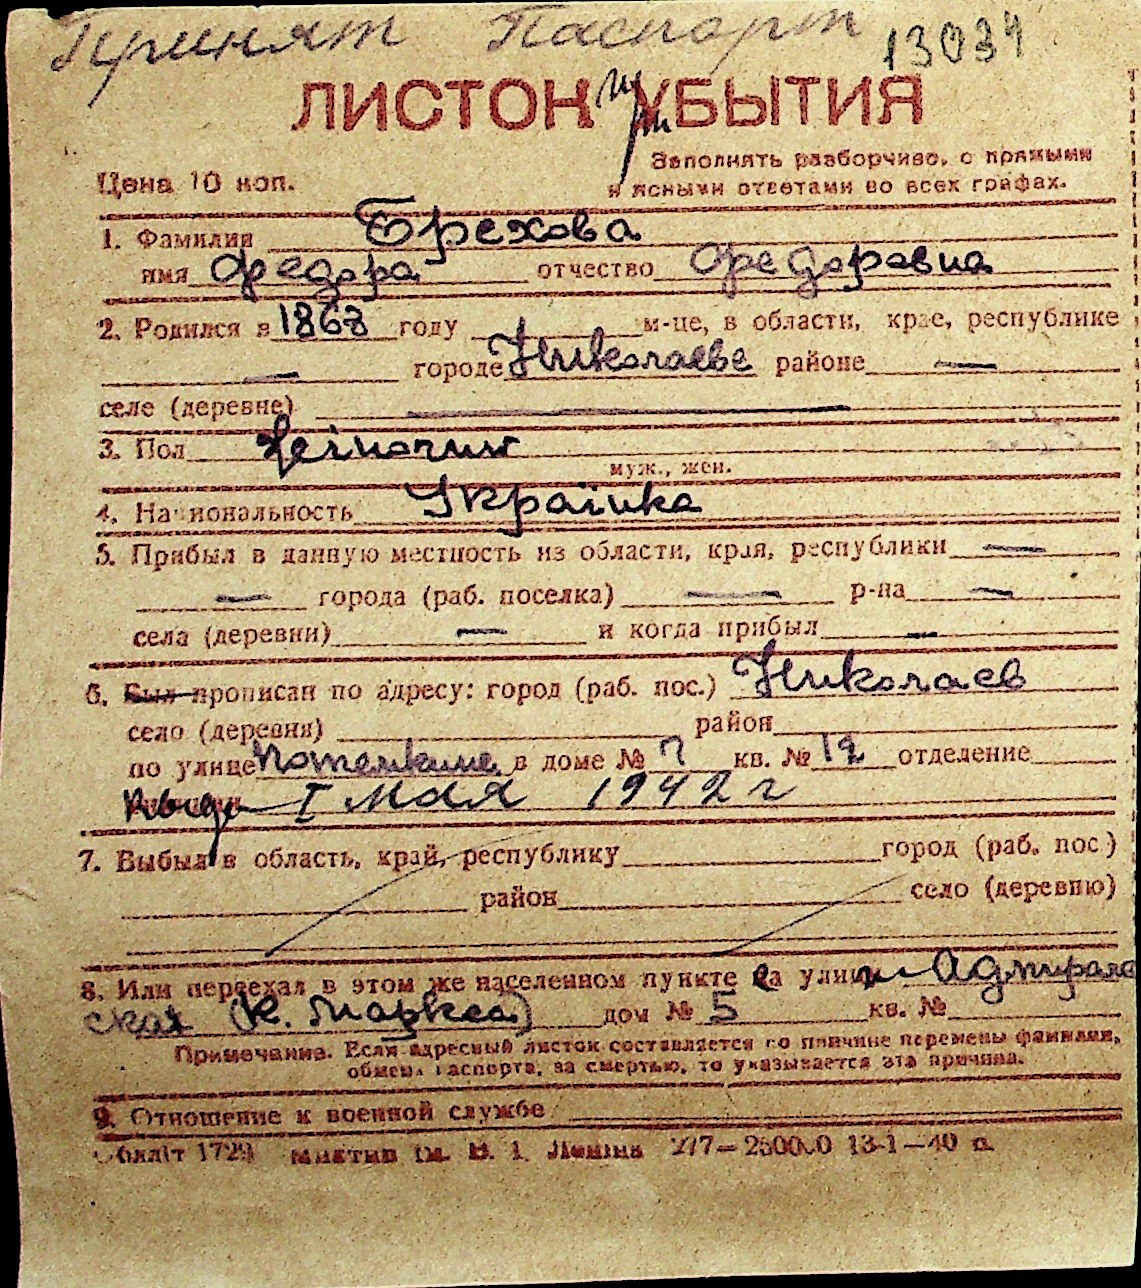 Принят Паспорт 13034
ЛИСТОК при УБЫТИЯ
Заполнять разборчиво, с прямыми
Цена 10 коп. и ясными ответами во всех графах.
1. Фамилия Брехова
имя Федора отчество Федоровна
2. Родился в 1868 году м-це, в области, крае, республике
— городе Николаеве районе —
селе (деревне) —
3. Пол
муж., жен.
4. Национальность Українка
5. Прибыл в данную местность из области, края, республики —
— города (раб. поселка) — р-на —
села (деревни) — и когда прибыл —
6. Был прописан по адресу: город (раб. пос.) Николаев
село (деревня) район
по улице в доме № 7 кв. № 12 отделение
I мая 1942 г
7. Выбыл в область, край, республику город (раб. пос.)
район село (деревню)
8. Или переехал в этом же населенном пункте на улицу Адмирала
ская (К. Маркса) дом № 5 кв. №
Примечание. Если адресный листок составляется по причине перемены фамилии,
обмена паспорта, за смертью, то указывается эта причина.
9. Отношение к военной службе
Обліт 1729 ім. В. І. Леніна 277—250000 13-1—40 р.